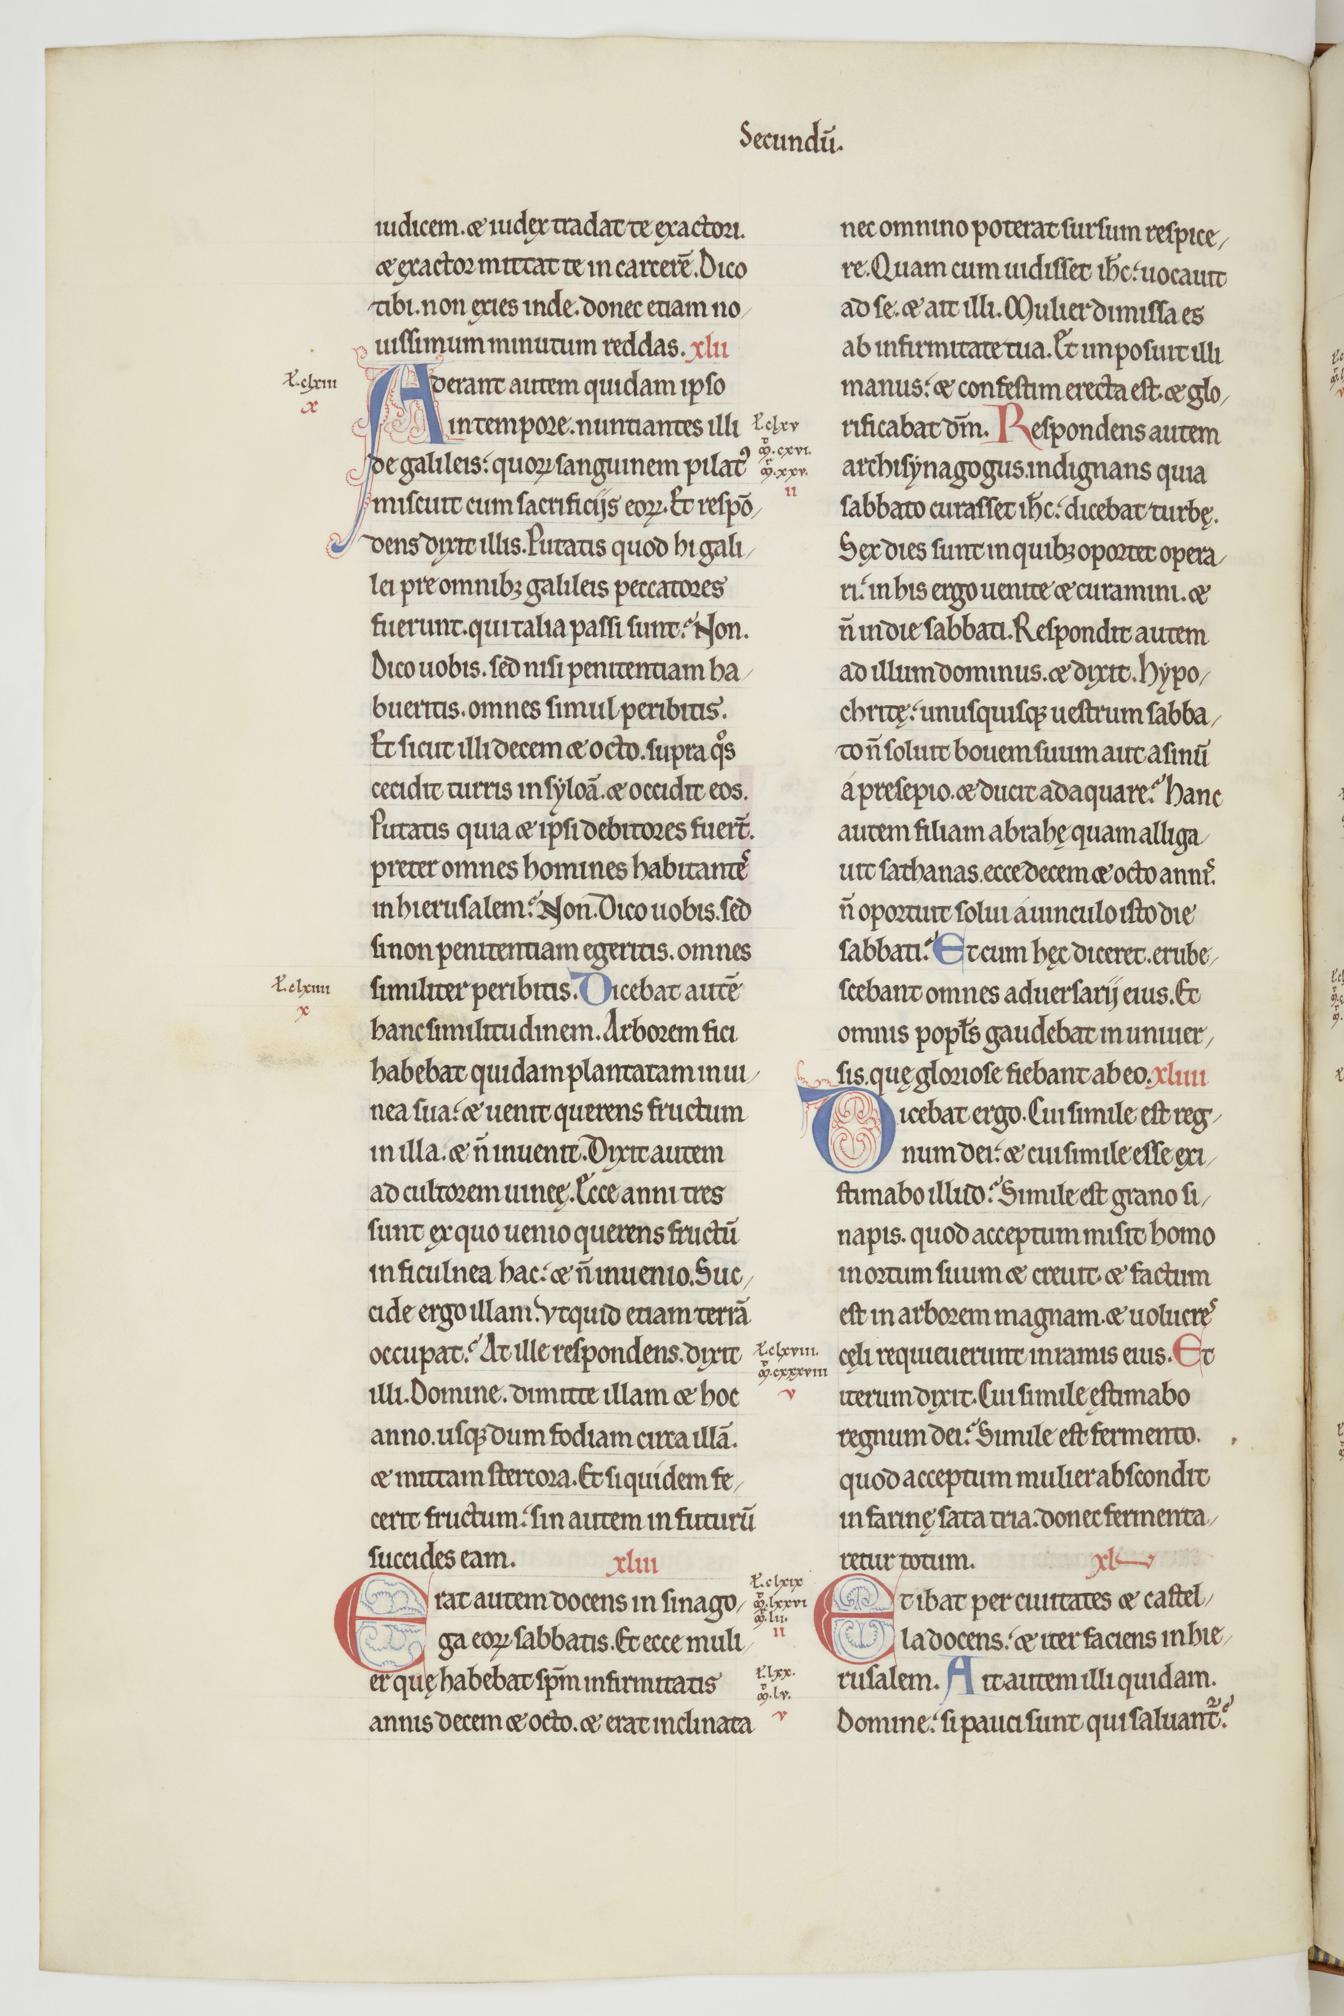 Secundū.
iudicem. & iudex tradat te exactori.
& exactor mittat te in carcerē. Dico
tibi. non exies inde. donec etiam no/
uissimum minutum reddas. xlii
L. clxiii
x
Aderant autem quidam ipso
in tempore. nuntiantes illi
de galileis: quoꝝ sanguinem pilatꝰ
miscuit cum sacrificijs eoꝝ. Et respō/
dens dixit illis. Putatis quod hi gali/
lei pre omnibꝫ galileis peccatores
fuerunt. qui talia passi sunt? Non.
Dico uobis. sed nisi penitentiam ha/
bueritis. omnes simul peribitis.
Et sicut illi decem & octo. supra qͦs
cecidit turris in syloā. & occidit eos.
Putatis quia & ipsi debitores fuer̄t.
preter omnes homines habitantes
in hierusalem? Non. Dico uobis. sed
si non penitentiam egeritis. omnes
L. clxiiii
x
similiter peribitis. Dicebat autē
hanc similitudinem. Arborem fici
habebat quidam plantatam in ui/
nea sua: & uenit querens fructum
in illa. & n̄ inuenit. Dixit autem
ad cultorem uineę. Ecce anni tres
sunt ex quo uenio querens fructū
in ficulnea hac: & n̄ inuenio. Suc/
cide ergo illam. Vtquid etiam terrā
occupat? At ille respondens. dixit
illi. Domine. dimitte illam & hoc
anno. usqꝫ dum fodiam circa illā.
& mittam stercora. Et siquidem fe/
cerit fructum: sin autem in futurū
succides eam. xliii
Erat autem docens in sinago/
ga eoꝝ sabbatis. Et ecce muli/
er quę habebat sp̄m infirmitatis
annis decem & octo. & erat inclinata
L. clxv
M. cxvi.
M. xxv.
ii
L. clxviii.
M. cxxxviii
v
L. clxix
M. lxxvi
M. lii.
ii
L. lxx.
M. lv.
v
nec omnino poterat sursum respice/
re. Quam cum uidisset ih̄c: uocauit
ad se: & ait illi. Mulier dimissa es
ab infirmitate tua. Et imposuit illi
manus: & confestim erecta est. & glo/
rificabat dm̄. Respondens autem
archisynagogus. indignans quia
sabbato curasset ih̄c: dicebat turbę.
Sex dies sunt in quibꝫ oportet opera/
ri: in his ergo uenite & curamini. &
n̄ in die sabbati. Respondit autem
ad illum dominus. & dixit. Hypo/
chritę: unusquisqꝫ uestrum sabba/
to n̄ soluit bouem suum aut asinū
a presepio. & ducit adaquare? Hanc
autem filiam abrahę quam alliga/
uit sathanas. ecce decem & octo annis.
n̄ oportuit solui a uinculo isto die
sabbati? Et cum hęc diceret. erube/
scebant omnes aduersarij eius. Et
omnis popl̄s gaudebat in uniuer/
sis. quę gloriose fiebant ab eo. xliiii
Dicebat ergo. Cui simile est reg/
num dei: & cui simile esse exi/
stimabo illud? Simile est grano si/
napis. quod acceptum misit homo
in ortum suum & creuit. & factum
est in arborem magnam. & uolucres
cęli requieuerunt in ramis eius. Et
iterum dixit. Cui simile ęstimabo
regnum dei? Simile est fermento.
quod acceptum mulier abscondit
in farinę sata tria: donec fermenta/
retur totum. xlv
Et ibat per ciuitates & castel/
la docens: & iter faciens in hie/
rusalem. Ait autem illi quidam.
Domine: si pauci sunt qui saluant᷑?